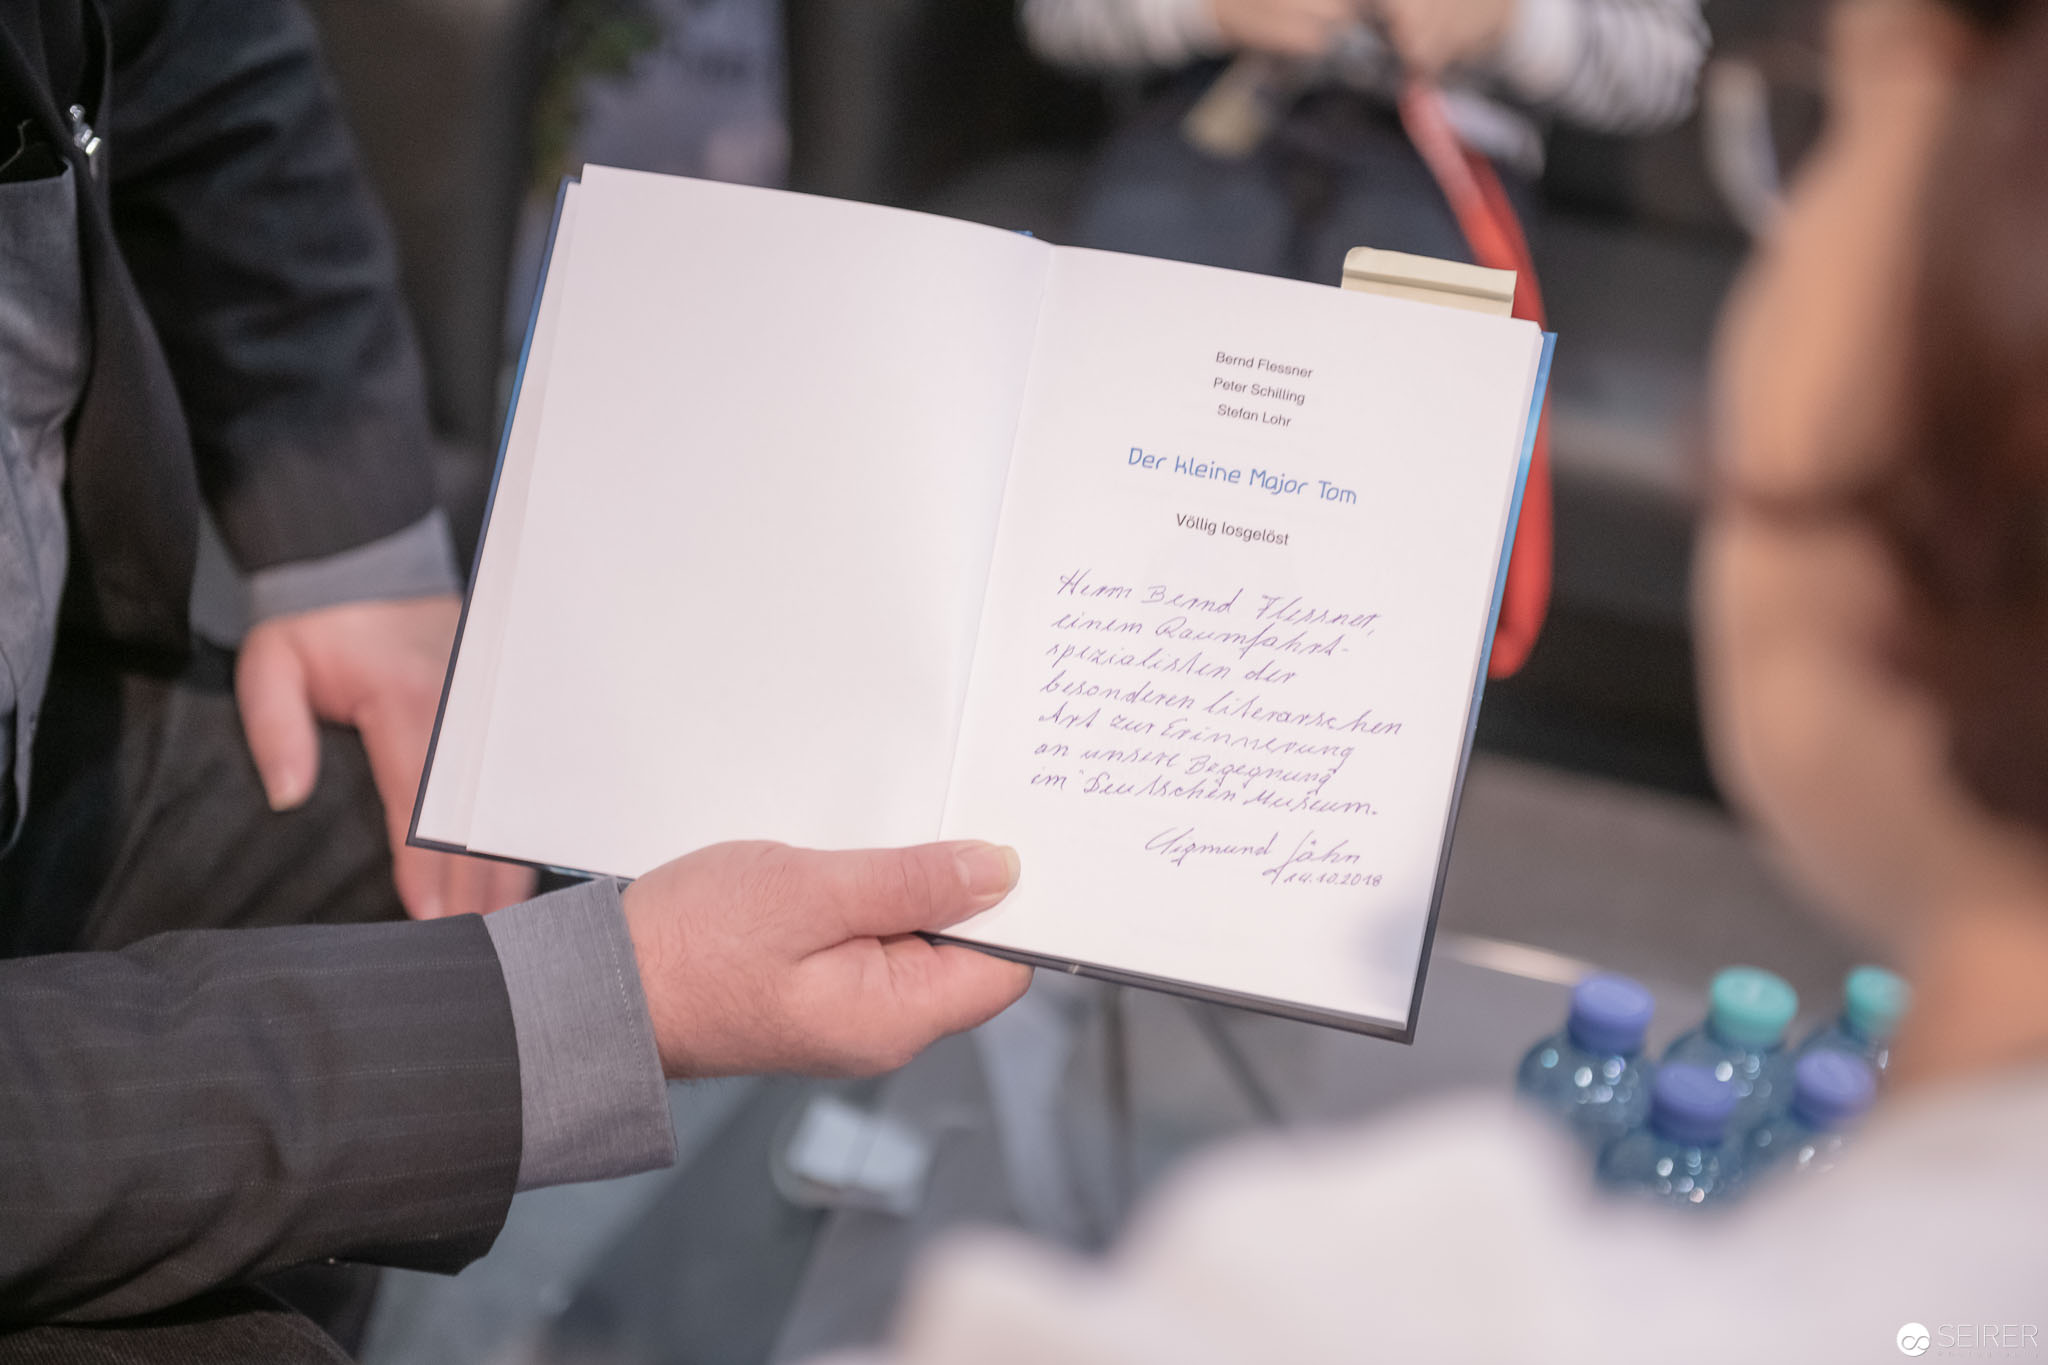 Bernd Flessner
Peter Schilling
Stefan Lohr
Der kleine Major Tom
Völlig losgelöst
Herrn Bernd Flessner,
einem Raumfahrt-
spezialisten der
besonderen literarschen
Art zur Erinnerung
an unsere Begegnung
im "Deutschen Museum.
Sigmund Jähn
14.10.2018
SEIRER